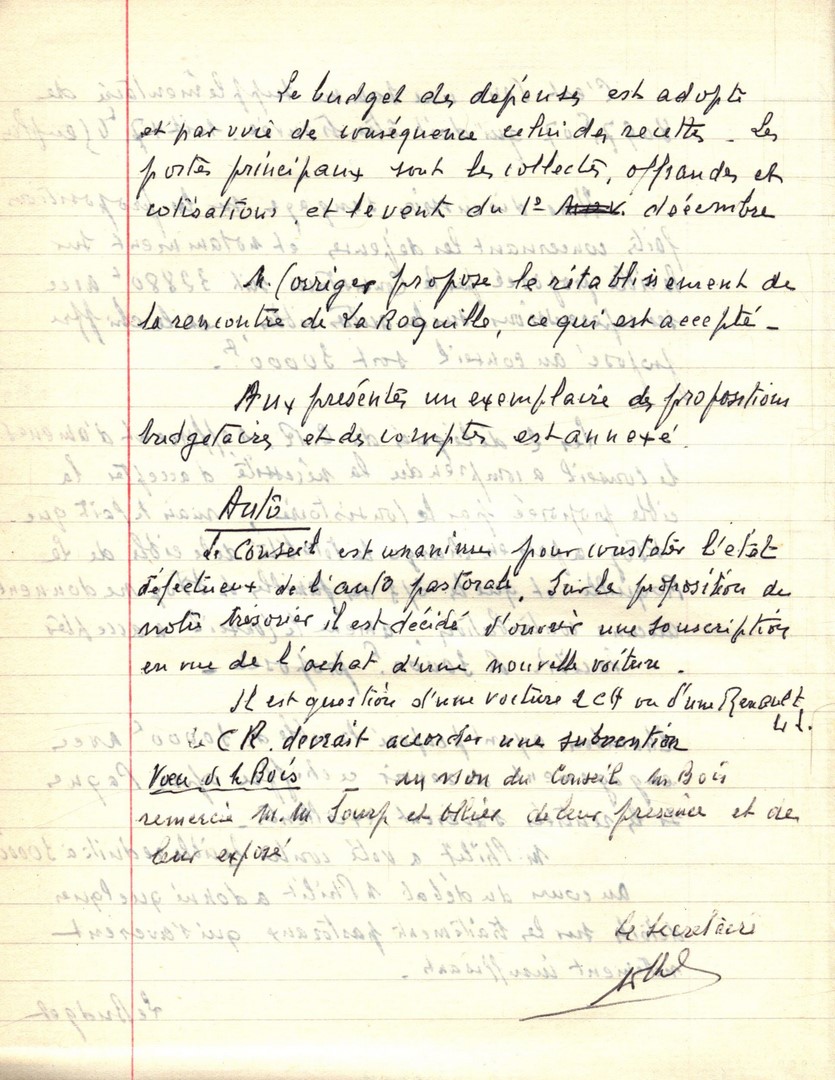 Le budget des dépenses est adopté
et par voie de conséquence celui des recettes. Les
postes principaux sont les collectes, offrandes et
cotisations, et le vent du 1º décembre
M. Corriger propose le rétablissement de
la rencontre de La Roquille, ce qui est accepté -
Aux présentes un exemplaire des propositions
budgetaires et des comptes est annexé.
Auto
Le Conseil est unanime pour constater l'état
défectueux de l'auto pastorale. Sur la proposition de
notre trésorier il est décidé d'ouvrir une souscription
en vue de l'achat d'une nouvelle voiture.
Il est question d'une voiture 2 CH ou d'une Renault
4 L.
Le C R. devrait accorder une subvention
Vœu de M Bois - au nom du Conseil M Bois
remercie M.M et de leur présence et de
leur exposé
Le secrétaire